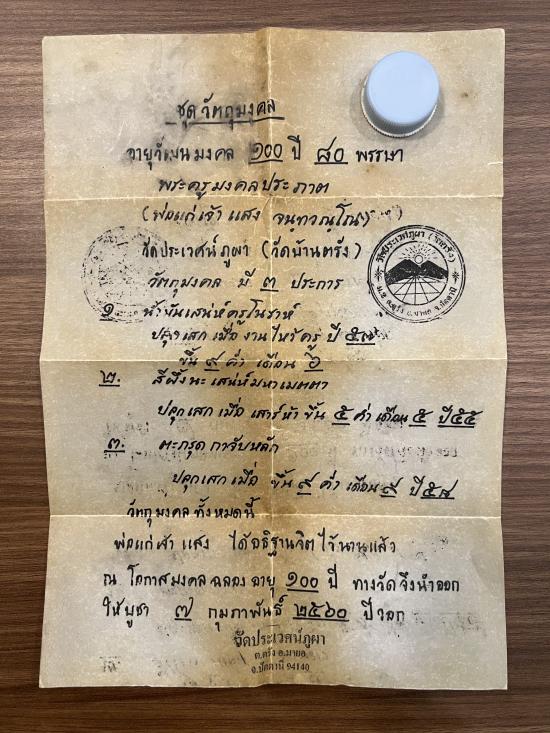 ชุดวัตถุมงคล
อายุวัฒนมงคล ๑๐๐ ปี ๘๐ พรรษา
พระครูมงคลประภาต
(พ่อแก่เจ้าแสง จนฺทวณฺโณ)
วัดประเวศน์ภูผา (วัดบ้านตรัง)
วัดประเวศน์ภูผา (วัดตรัง)
ม.๕ ต.ตรัง อ.มายอ จ.ปัตตานี
วัตถุมงคล มี ๓ ประการ
๑. น้ำมันเสน่ห์ครูโนราห์
ปลุกเสก เมื่องานไหว้ครู ปี ๕๗
ขึ้น ๙ ค่ำ เดือน ๖
๒. สีผึ้งนะเสน่ห์มหาเมตตา
ปลุกเสก เมื่อ เสาร์ห้า ขึ้น ๕ ค่ำ เดือน ๕ ปี ๕๕
๓. ตะกรุด กาจับหลัก
ปลุกเสก เมื่อ ขึ้น ๙ ค่ำ เดือน ๙ ปี ๕๘
วัตถุมงคลทั้งหมดนี้
พ่อแก่เจ้าแสง ได้อธิฐานจิตไว้นานแล้ว
ณ โอกาสมงคลฉลองอายุ ๑๐๐ ปี ทางวัดจึงนำออก
ให้บูชา ๗ กุมภาพันธ์ ๒๕๖๐ ปีวอก
วัดประเวศน์ภูผา
ต.ตรัง อ.มายอ
จ.ปัตตานี 94140